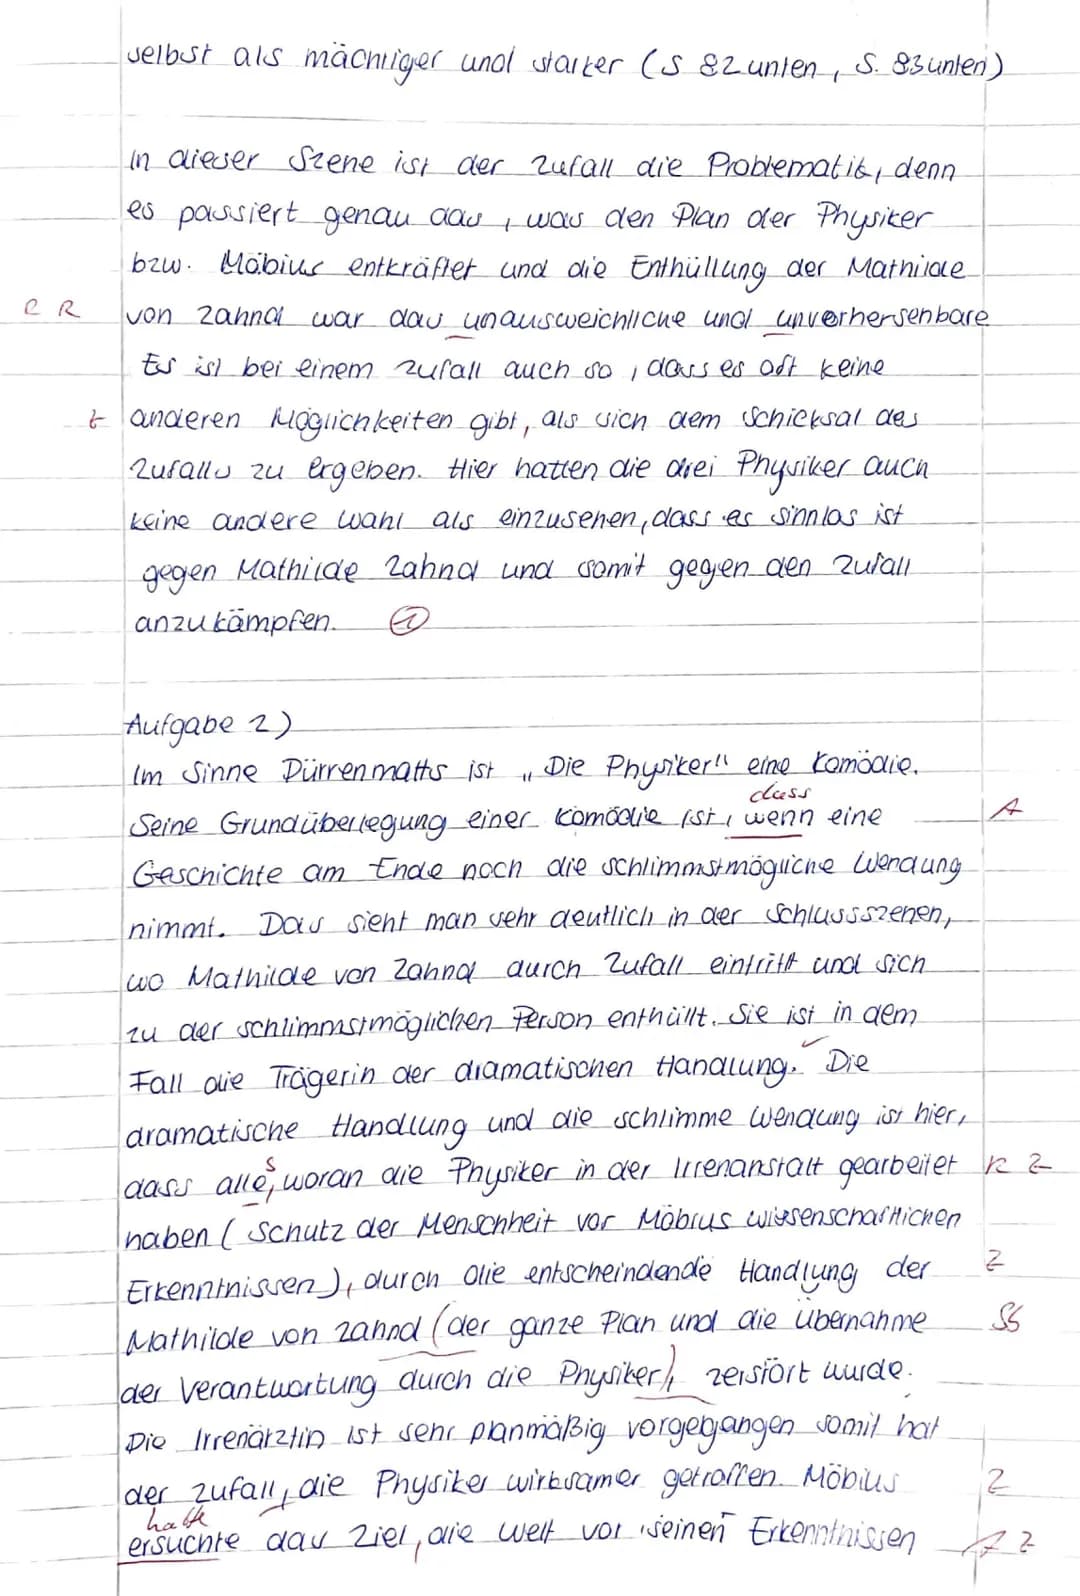 selbst als mächtiger und starker (S 82 unten, S. 83 unten)
In dieser Szene ist der Zufall die Problematik, denn
es passiert genau das, was den Plan der Physiker
bzw. Möbius entkräftet und die Enthüllung der Mathilde
R R von Zahnd war das unausweichliche und unverhersehbare
Es ist bei einem Zufall auch so, dass es oft keine
t anderen Möglichkeiten gibt, als sich dem Schicksal des
Zufalls zu ergeben. Hier hatten die drei Physiker auch
keine andere Wahl als einzusehen, dass es sinnlos ist
gegen Mathilde Zahnd und somit gegen den Zufall
anzukämpfen.
Aufgabe 2)
Im Sinne Dürrenmatts ist „Die Physiker" eine Komödie.
dass
Seine Grundüberlegung einer Komödie ist, wenn eine A
Geschichte am Ende noch die schlimmstmögliche Wendung
nimmt. Das sieht man sehr deutlich in der Schlussszenen,
wo Mathilde von Zahnd durch Zufall eintrifft und sich
zu der schlimmstmöglichen Person enthüllt. Sie ist in dem
Fall die Trägerin der dramatischen Handlung. Die
dramatische Handlung und die schlimme Wendung ist hier,
dass alles, woran die Physiker in der Irrenanstalt gearbeitet R Z
haben (Schutz der Menschheit vor Möbius wissenschaftlichen
Erkenntnissen), durch die entscheindende Handlung der Z
Mathilde von Zahnd (der ganze Plan und die Übernahme Sb
der Verantwortung durch die Physiker), zerstört wurde.
Die Irrenärztin ist sehr planmäßig vorgegangen somit hat
der Zufall, die Physiker wirksamer getroffen. Möbius Z
hatte
ersuchte das Ziel, die Welt vor seinen Erkenntnissen Z